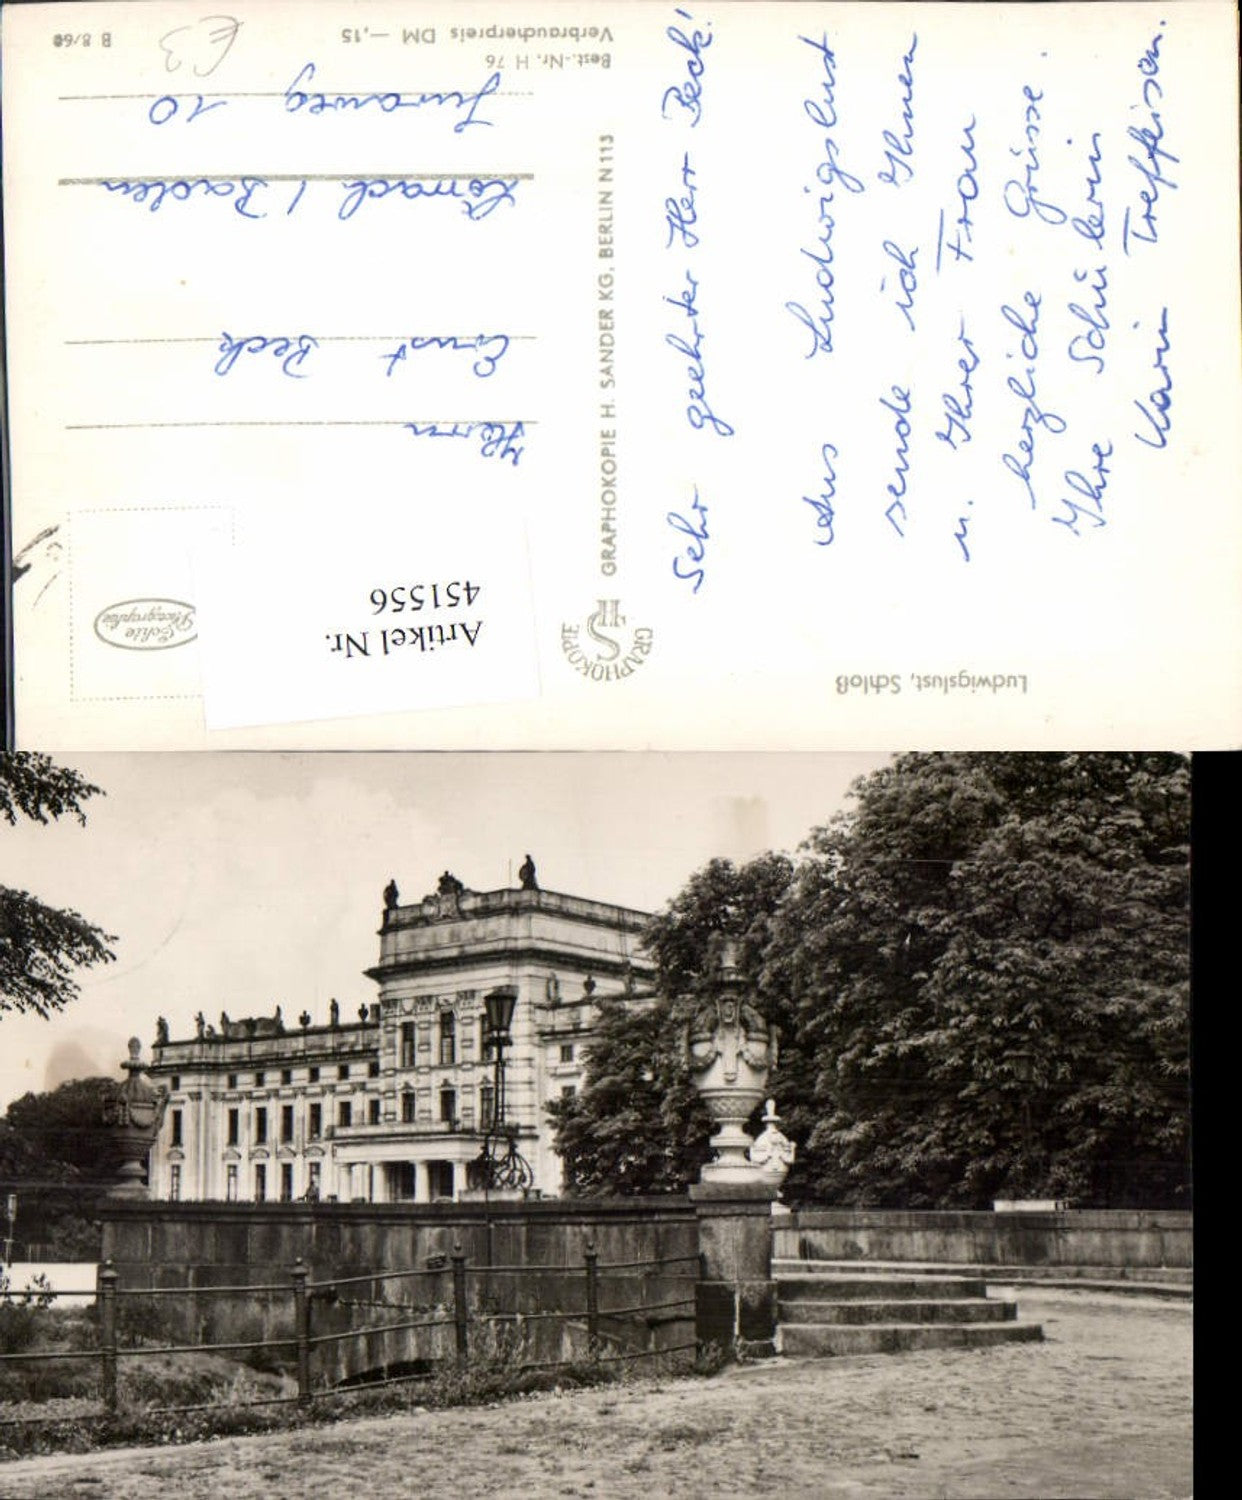 Sehr geehrter Herr Beck!
Aus Ludwigslust
sende ich Ihnen
u. Ihrer Frau
herzliche Grüsse.
Ihre Schülerin
Karin Treffeisen.
Ludwigslust, Schloß
GRAPHOKOPIE
HS
GRAPHOKOPIE H. SANDER KG. BERLIN N 113
Echte
Photographie
Artikel Nr.
451556
Herrn
Ernst Beck
Lörrach / Baden
Juraweg 10
Best.-Nr. H 76
Verbraucherpreis DM —,15
B 8/60
€3